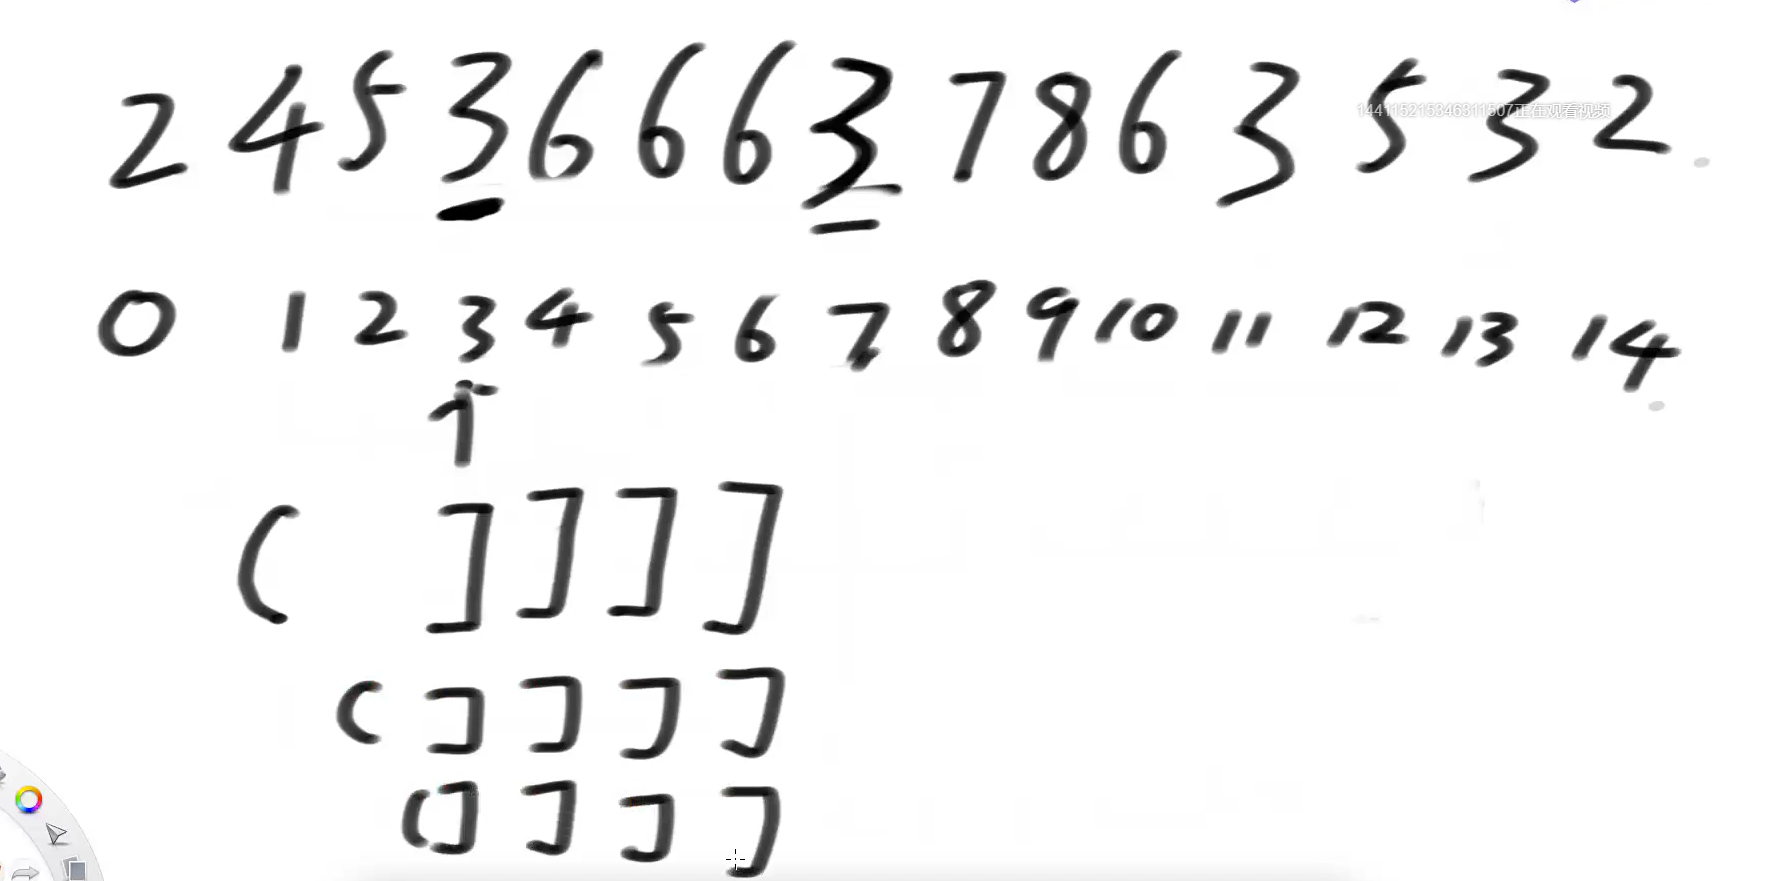 2 4 5 3 6 6 6 3 7 8 6 3 5 3 2
144115215346311507正在观看视频
0 1 2 3 4 5 6 7 8 9 10 11 12 13 14
↑
( ] ] ] ]
( ] ] ] ]
( ] ] ] ]